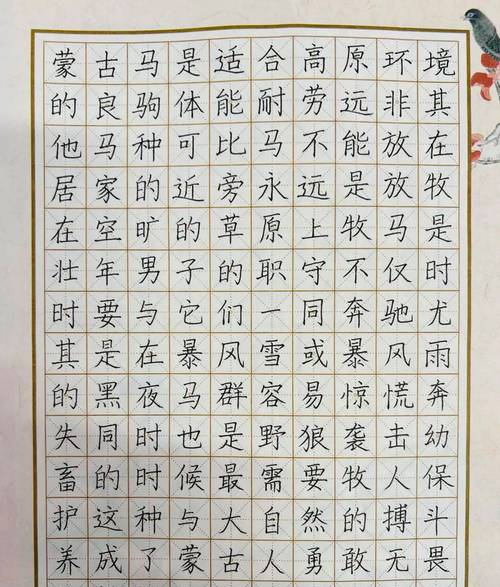 蒙古马是适合高原环境
的良驹体能耐劳远非其
他马种可比马不能放在
居家的近旁永远是放牧
在空旷的草原上牧马是
壮年男子的职守不仅时
时要与它们一同奔驰尤
其是在暴风雪或暴风雨
的黑夜马群容易惊慌奔
失同时也是野狼袭击幼
畜的时候最需要牧人保
护这种与大自然的搏斗
养成了蒙古人勇敢无畏